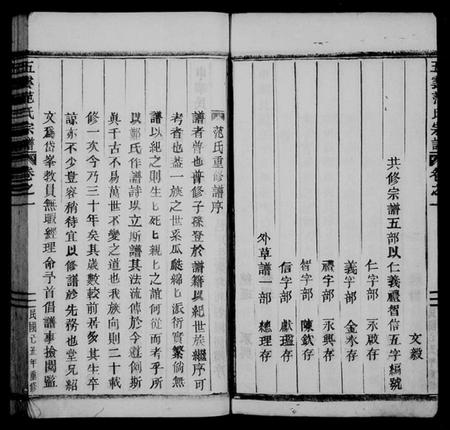 五雲范氏宗譜
文毅
共修宗譜五部以仁義禮智信五字編號
仁字部 永啟存
義字部 金奉存
禮字部 永興存
智字部 陳欽存
信字部 獻瑞存
外草譜一部 總理存
范氏重修譜序
譜者普也普修子孫登於譜籍以紀世族繼序可
考者也盖一族之世系瓜瓞綿綿派衍實繁倘無
譜以紀之則生生死死親親上之誼何從而考乎所
以鄭氏作譜詩以立斯譜其法流傳於今遵例斯
與千古不易萬世不變之道也我族向例二十載
修一次今乃三十年矣其歲數較前居多其生卒
諒亦不少登容稍待宜以修譜於先務也堂兄紹
文為岱峯教員無暇經理命予首倡譜事撿閱監
五雲范氏宗譜 卷之一
民國己丑年重修